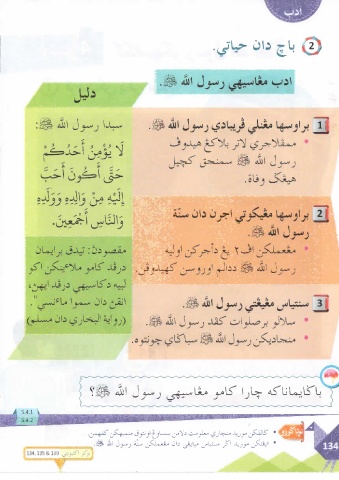 ادب
2 باچ دان حياتي.
ادب مڠاسيهي رسول الله ﷺ.
دليل
1 براوسها مڠنلي قريبادي رسول الله ﷺ.
• ممڤلاجري لاتر بلاکڠ هيدوڤ
رسول الله ﷺ سمنجق کچيل
هيڠݢ وفاة.
2 براوسها مڠيکوتي اجرن دان سنة
رسول الله ﷺ.
• مڠعملکن اڤ٢ يڠ دأجرکن اوليه
رسول الله ﷺ ددالم اوروسن کهيدوڤن.
3 سنتياس مڠيڠتي رسول الله ﷺ.
• سلالو برصلوات کڤد رسول الله ﷺ.
• منجاديکن رسول الله ﷺ سباݢاي چونتوه.
سبدا رسول الله ﷺ:
لَا يُؤْمِنُ أَحَدُكُمْ
حَتَّى أَكُونَ أَحَبَّ
إِلَيْهِ مِنْ وَالِدِهِ وَوَلَدِهِ
وَالنَّاسِ أَجْمَعِينَ.
مقصودڽ: تيدق برايمان
درڤد کامو ملاٴينکن اکو
لبيه دکاسيهي درڤد ايهڽ،
انقڽ دان سموا مأنسي".
(رواية البخاري دان مسلم)
باݢايماناکه چارا کامو مڠاسيهي رسول الله ﷺ؟
5.4.1
5.4.2
134